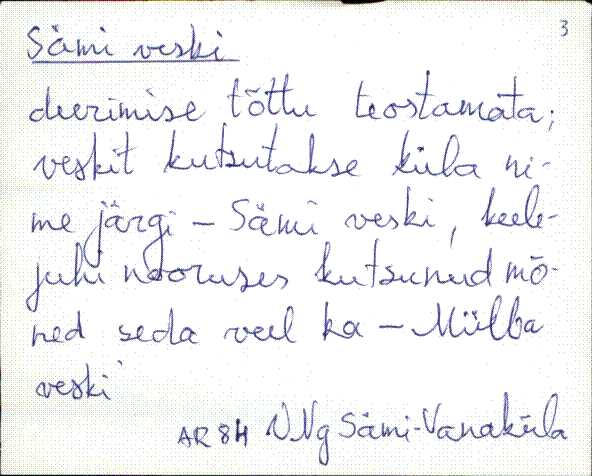 3
Sämi veski
deerimise tõttu teostamata;
veskit kutsutakse küla ni-
me järgi - Sämi veski, keele-
juhi nooruses kutsunud mõ-
ned seda veel ka - Mülba
veski
AR 84 V.Ng Sämi-Vanaküla